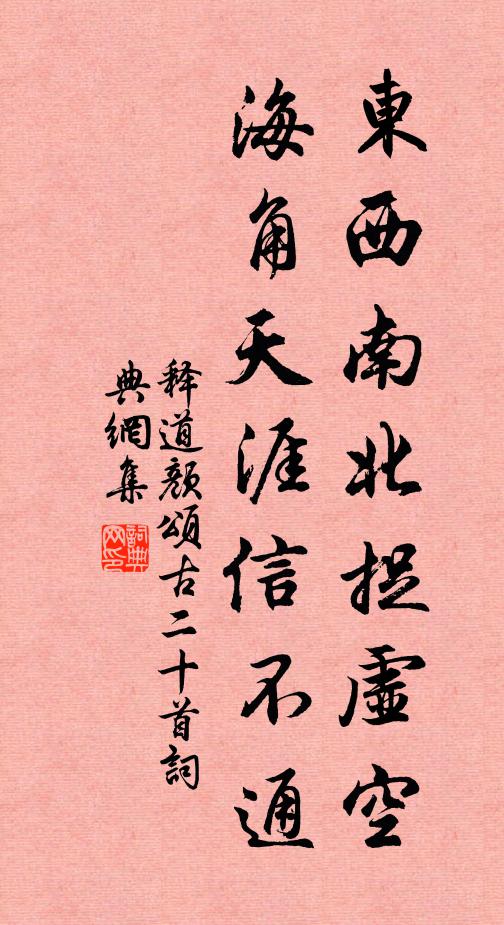 東西南北捉虛空
海角天涯信不通
释道颜頌古二十首詞
典網集
詞典
网印